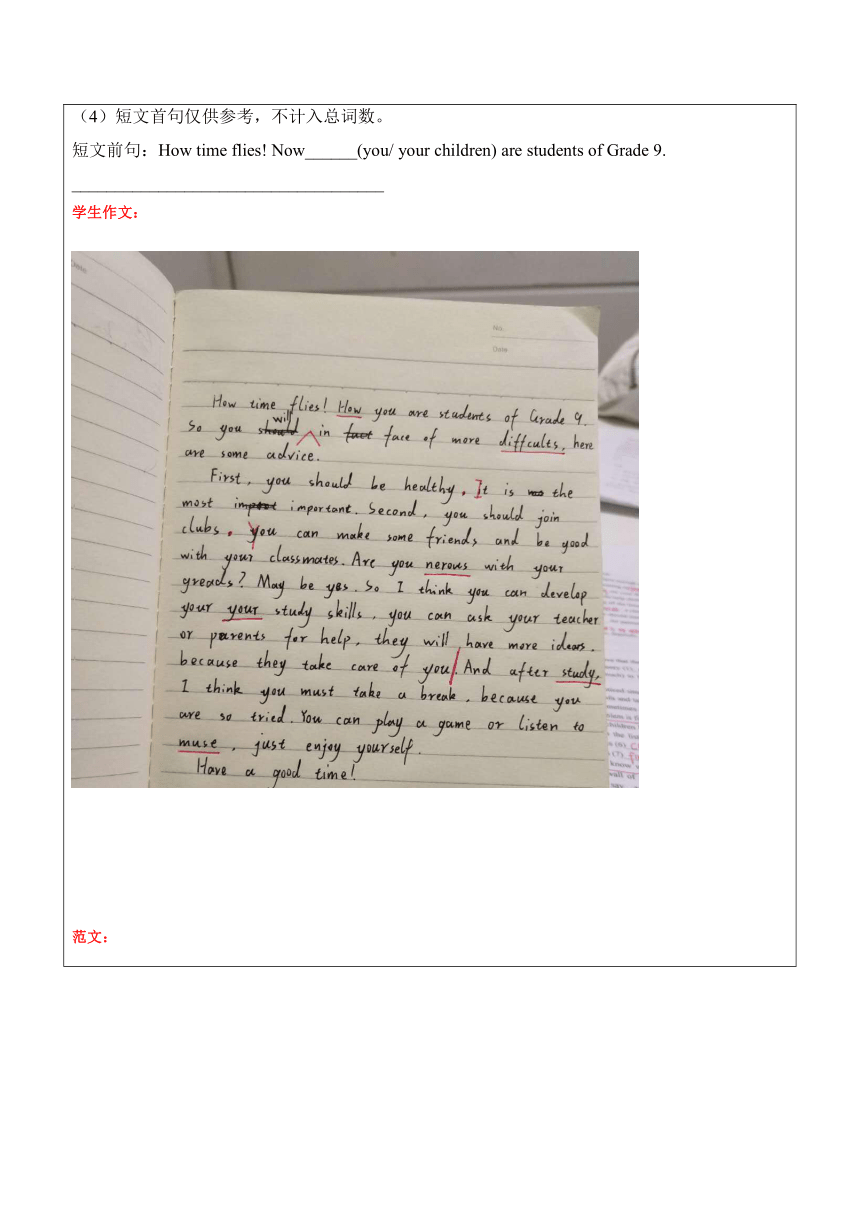 （4）短文首句仅供参考，不计入总词数。
短文前句：How time flies! Now______(you/ your children) are students of Grade 9.
学生作文：
Date
No.
Date
How time flies! How you are students of Grade 9.
will
So you should in fact face of more diffcults, here
are some advice.
First, you should be healthy. It is the
most important. Second, you should join
clubs. you can make some friends and be good
with your classmates. Are you nerous with your
greads? May be yes. So I think you can develop
your your study skills, you can ask your teacher
or parents for help, they will have more ideas.
because they take care of you. And after study,
I think you must take a break, because you
are so tried. You can play a game or listen to
muse, just enjoy yourself.
Have a good time!
范文：